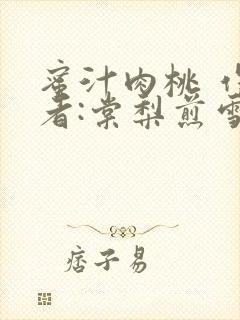 蜜汁肉桃 作
者:棠梨煎雪
痞子易